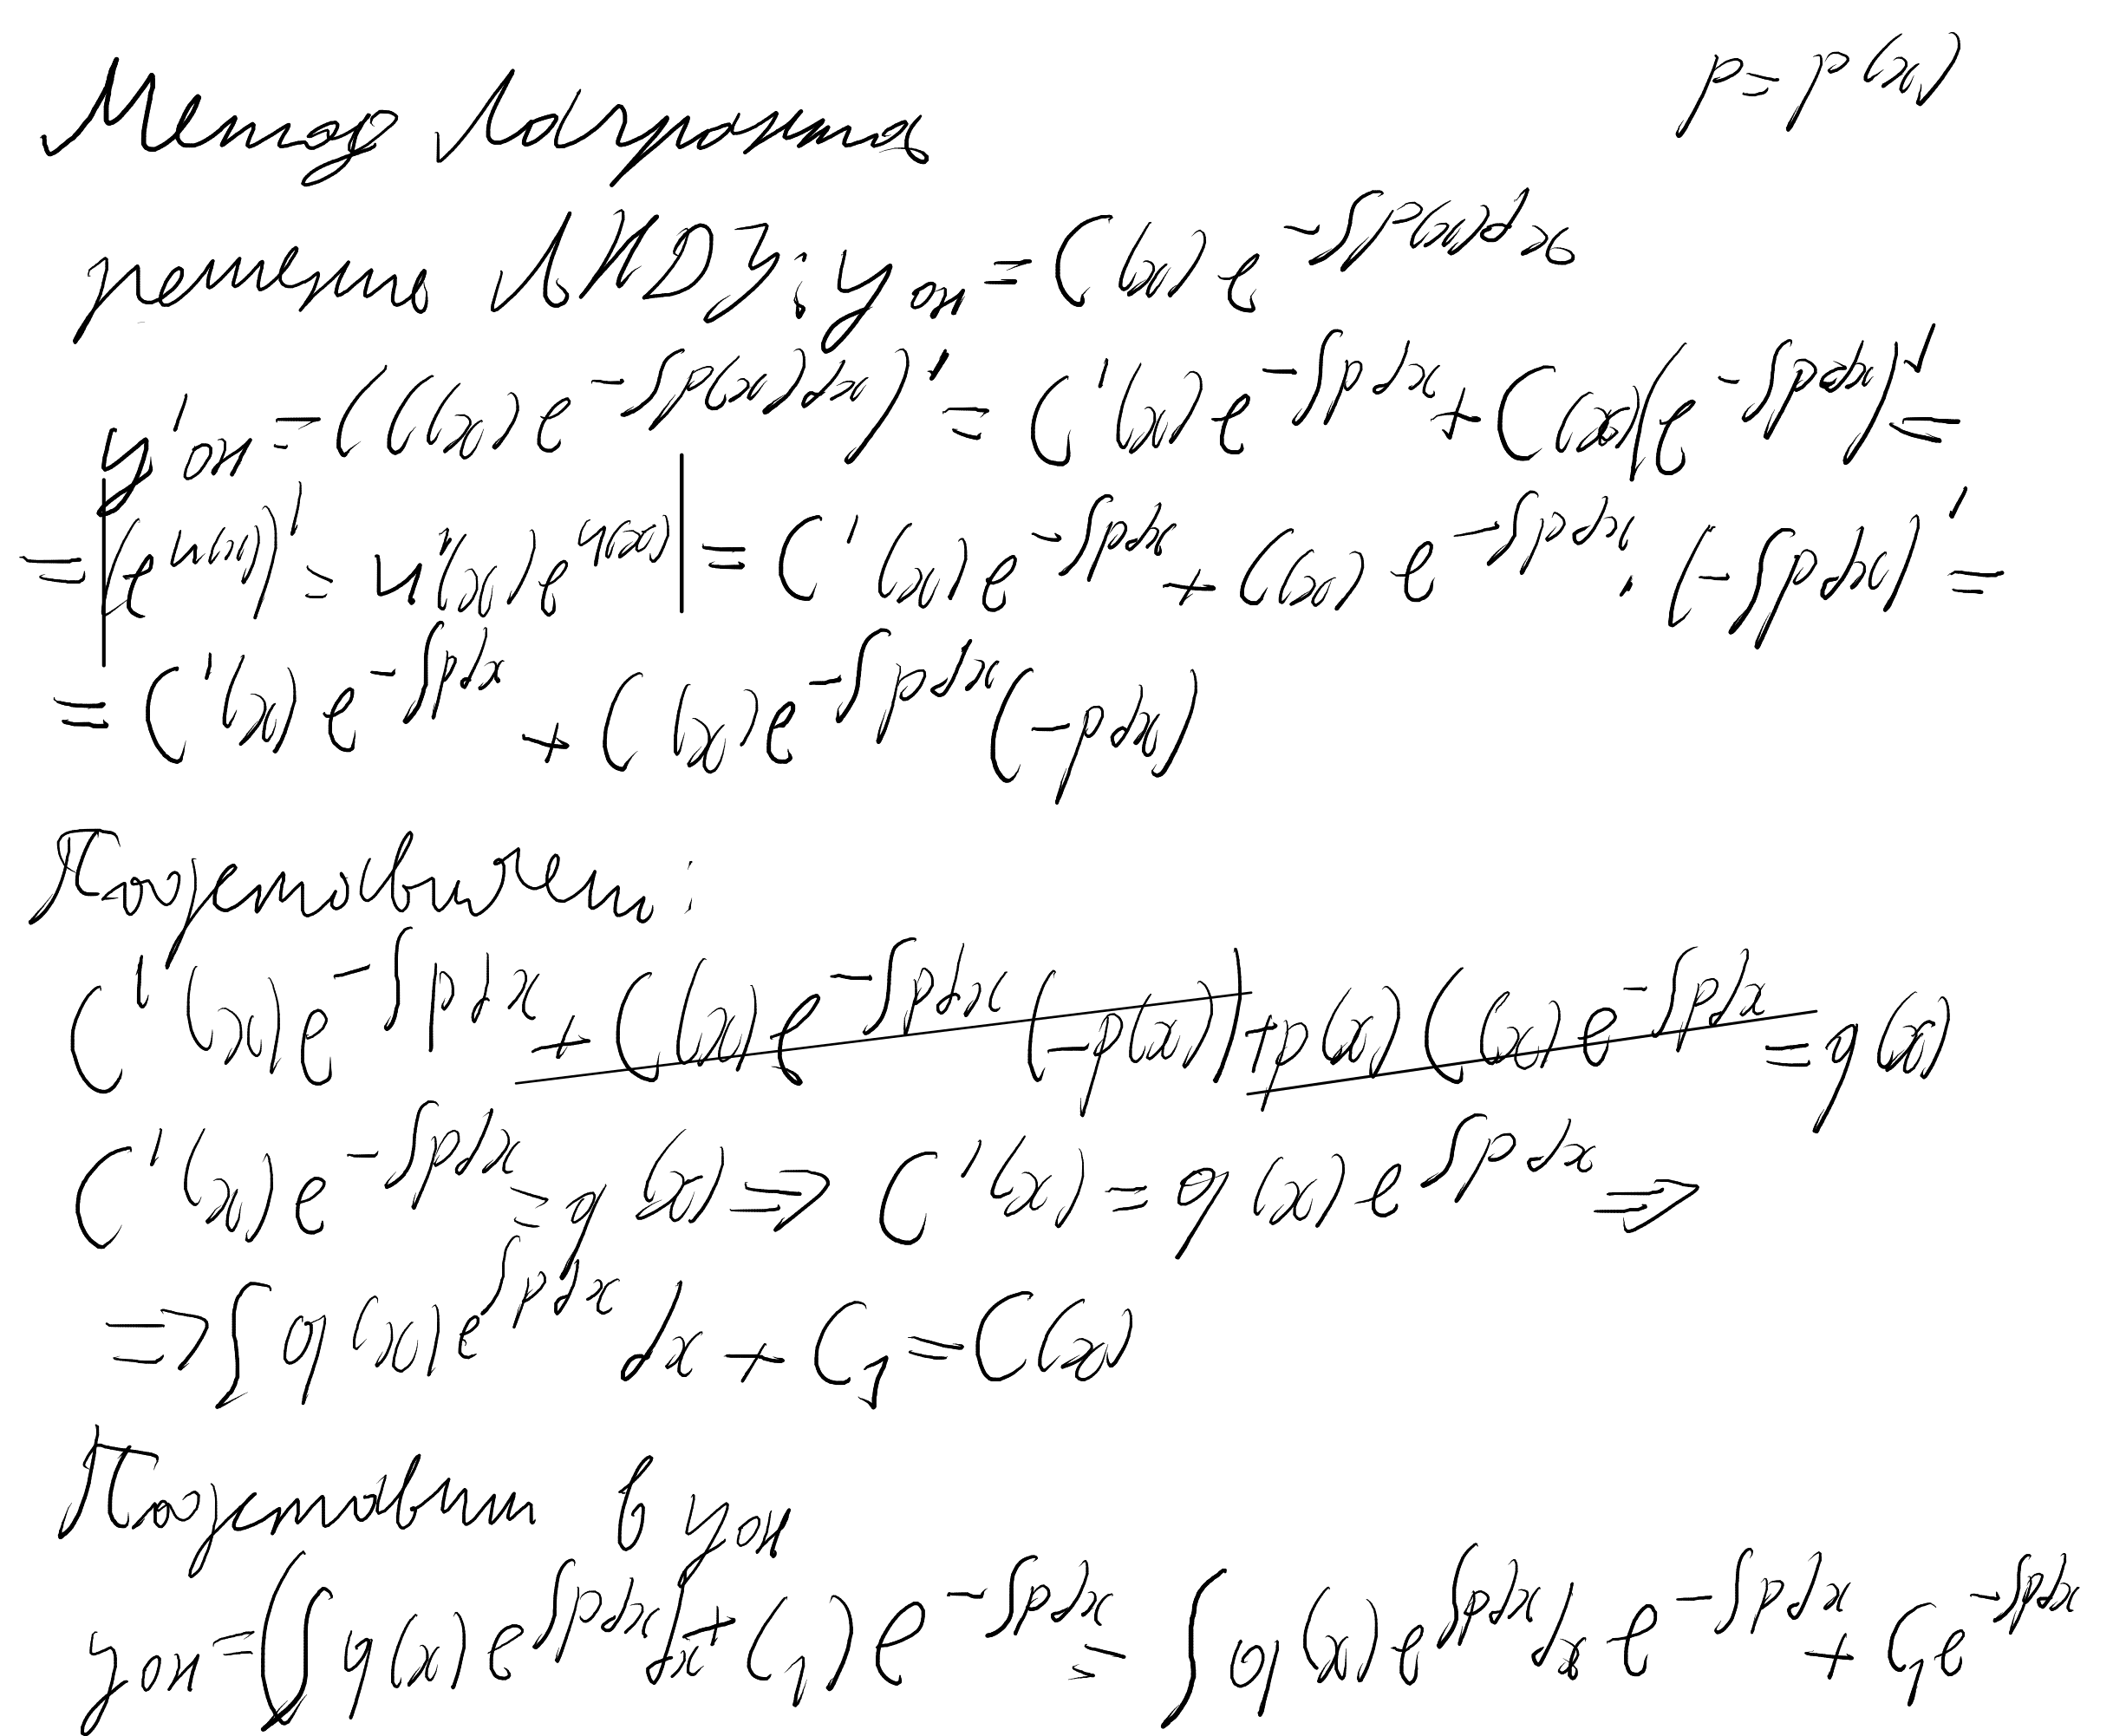 Метод Лагранжа
p = p(x)
решение ЛНДУ: y_он = C(x) e^{-∫p(x)dx}
y'_он = (C(x) e^{-∫p(x)dx})' = C'(x) e^{-∫pdx} + C(x)(e^{-∫pdx})' =
= |(e^{u(x)})' = u'(x) e^{u(x)}| = C'(x) e^{-∫pdx} + C(x) e^{-∫pdx} · (-∫pdx)' =
= C'(x) e^{-∫pdx} + C(x) e^{-∫pdx} (-pdx)
Подставляем:
C'(x) e^{-∫pdx} + C(x) e^{-∫pdx} (-p(x)) + p(x) C(x) e^{-∫pdx} = q(x)
C'(x) e^{-∫pdx} = q(x) ⇒ C'(x) = q(x) e^{∫pdx} ⇒
⇒ ∫ q(x) e^{∫pdx} dx + C_1 = C(x)
Подставим в y_он
y_он = (∫ q(x) e^{∫pdx} dx + C_1) e^{-∫pdx} = ∫ q(x) e^{∫pdx} dx e^{-∫pdx} + C_1 e^{-∫pdx}